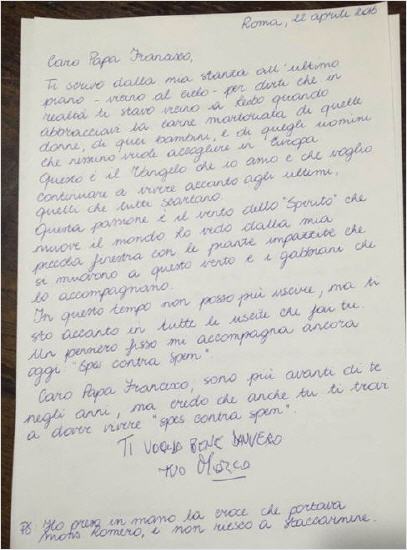 Roma, 22 aprile 2016
Caro Papa Francesco,
Ti scrivo dalla mia stanza all'ultimo
piano - vicino al cielo - per dirti che in
realtà ti stavo vicino a Lesbo quando
abbracciavi la carne martoriata di quelle
donne, di quei bambini, e di quegli uomini
che nessuno vuole accogliere in Europa
Questo è il Vangelo che io amo e che voglio
continuare a vivere accanto agli ultimi,
quelli che tutti scartano.
Questa passione è il vento dello "Spirito" che
muove il mondo lo vedo dalla mia
piccola finestra con le piante impazzite che
si muovono a questo vento e i gabbiani che
lo accompagnano.
In questo tempo non posso più uscire, ma ti
sto accanto in tutte le uscite che fai tu.
Un pensiero fisso mi accompagna ancora
oggi "Spes contra Spem".
Caro Papa Francesco, sono più avanti di te
negli anni, ma credo che anche tu ti trovi
a dover vivere "spes contra spem".
TI VOGLIO BENE DAVVERO
tuo Marco
PS: Ho preso in mano la croce che portava
mons Romero, e non riesco a staccarmene.